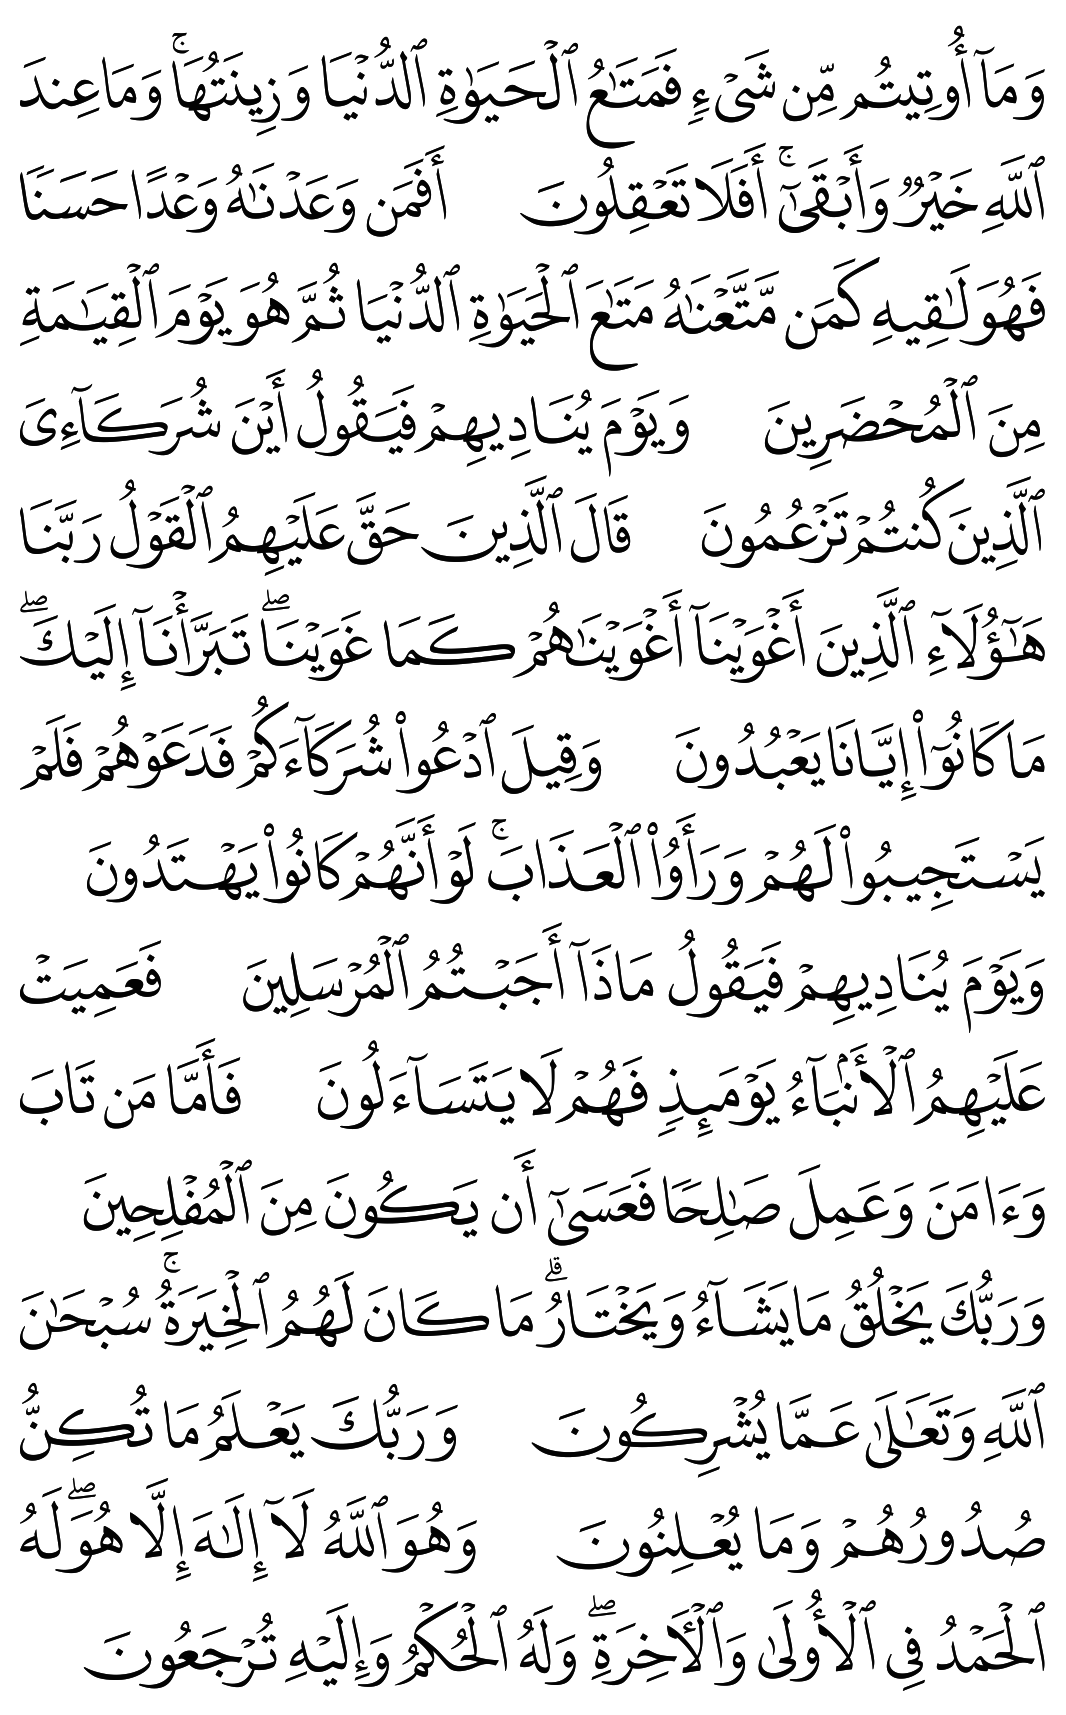 وَمَآ أُوتِيتُم مِّن شَىْءٍ فَمَتَـٰعُ ٱلْحَيَوٰةِ ٱلدُّنْيَا وَزِينَتُهَا ۚ وَمَا عِندَ
ٱللَّهِ خَيْرٌ وَأَبْقَىٰٓ ۚ أَفَلَا تَعْقِلُونَ أَفَمَن وَعَدْنَـٰهُ وَعْدًا حَسَنًا
فَهُوَ لَـٰقِيهِ كَمَن مَّتَّعْنَـٰهُ مَتَـٰعَ ٱلْحَيَوٰةِ ٱلدُّنْيَا ثُمَّ هُوَ يَوْمَ ٱلْقِيَـٰمَةِ
مِنَ ٱلْمُحْضَرِينَ وَيَوْمَ يُنَادِيهِمْ فَيَقُولُ أَيْنَ شُرَكَآءِىَ
ٱلَّذِينَ كُنتُمْ تَزْعُمُونَ قَالَ ٱلَّذِينَ حَقَّ عَلَيْهِمُ ٱلْقَوْلُ رَبَّنَا
هَـٰٓؤُلَآءِ ٱلَّذِينَ أَغْوَيْنَآ أَغْوَيْنَـٰهُمْ كَمَا غَوَيْنَا ۖ تَبَرَّأْنَآ إِلَيْكَ ۖ
مَا كَانُوٓا۟ إِيَّانَا يَعْبُدُونَ وَقِيلَ ٱدْعُوا۟ شُرَكَآءَكُمْ فَدَعَوْهُمْ فَلَمْ
يَسْتَجِيبُوا۟ لَهُمْ وَرَأَوُا۟ ٱلْعَذَابَ ۚ لَوْ أَنَّهُمْ كَانُوا۟ يَهْتَدُونَ
وَيَوْمَ يُنَادِيهِمْ فَيَقُولُ مَاذَآ أَجَبْتُمُ ٱلْمُرْسَلِينَ فَعَمِيَتْ
عَلَيْهِمُ ٱلْأَنۢبَآءُ يَوْمَئِذٍ فَهُمْ لَا يَتَسَآءَلُونَ فَأَمَّا مَن تَابَ
وَءَامَنَ وَعَمِلَ صَـٰلِحًا فَعَسَىٰٓ أَن يَكُونَ مِنَ ٱلْمُفْلِحِينَ
وَرَبُّكَ يَخْلُقُ مَا يَشَآءُ وَيَخْتَارُ ۗ مَا كَانَ لَهُمُ ٱلْخِيَرَةُ ۚ سُبْحَـٰنَ
ٱللَّهِ وَتَعَـٰلَىٰ عَمَّا يُشْرِكُونَ وَرَبُّكَ يَعْلَمُ مَا تُكِنُّ
صُدُورُهُمْ وَمَا يُعْلِنُونَ وَهُوَ ٱللَّهُ لَآ إِلَـٰهَ إِلَّا هُوَ ۖ لَهُ
ٱلْحَمْدُ فِى ٱلْأُولَىٰ وَٱلْـَٔاخِرَةِ ۖ وَلَهُ ٱلْحُكْمُ وَإِلَيْهِ تُرْجَعُونَ